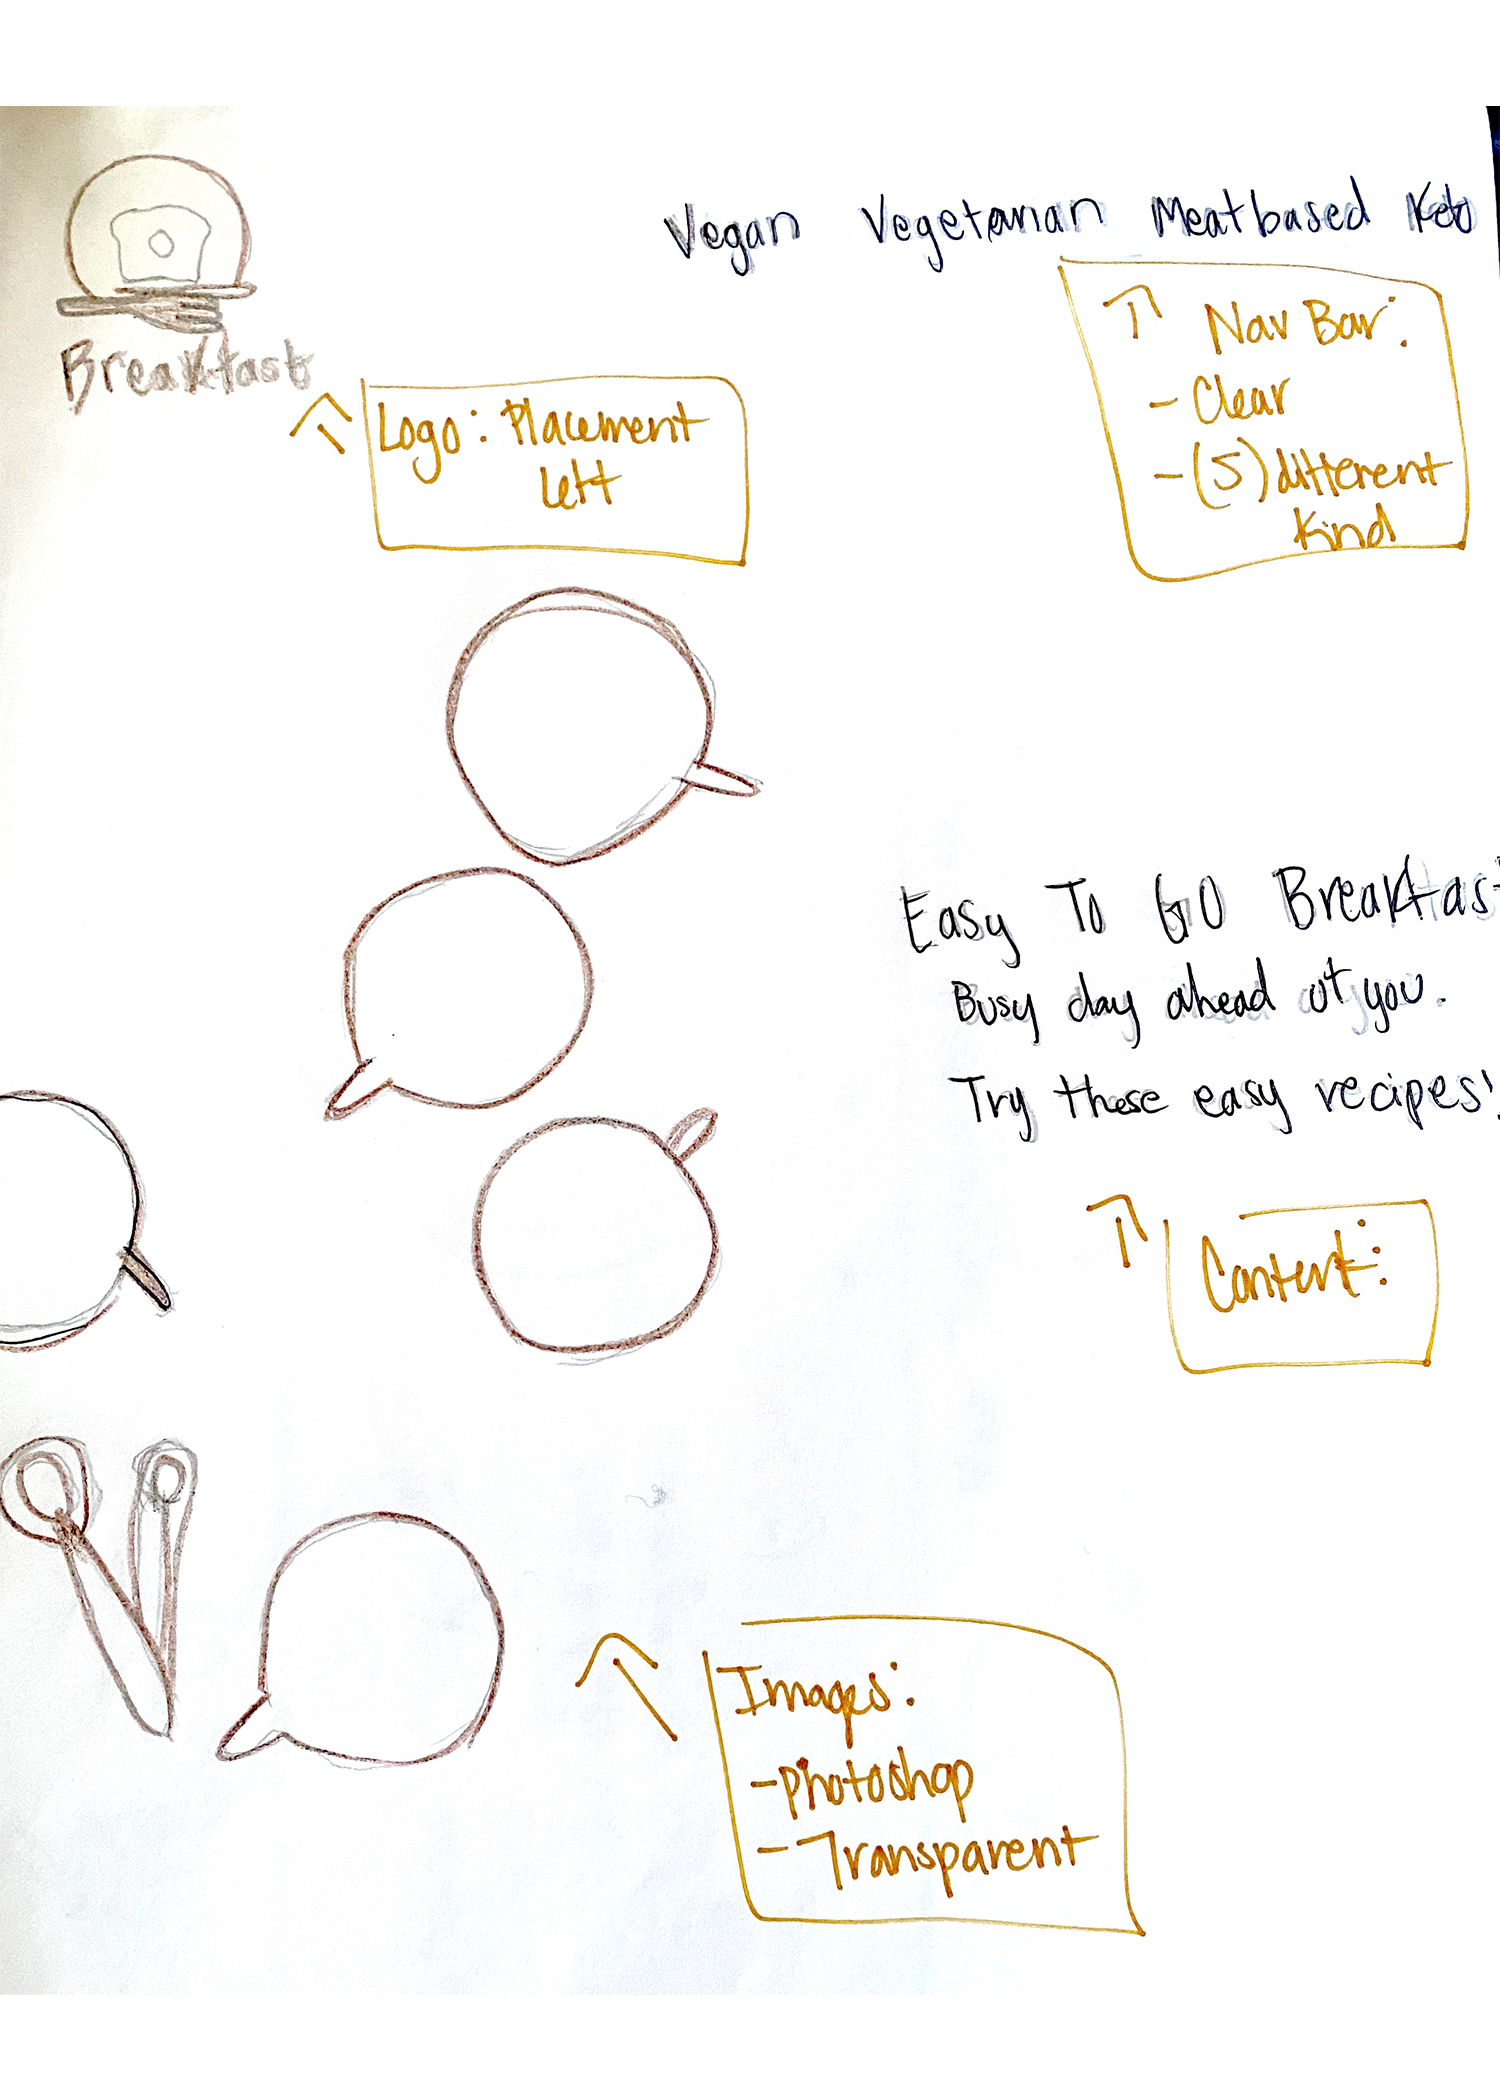 Vegan Vegetarian Meatbased Keto
Breakfast
↑ Nav Bar:
- Clear
- (5) different
Kind
↑ Logo: Placement
left
Easy To GO Breakfast
Busy day ahead of you.
Try these easy recipes!
↑ Content:
↑ Images:
- Photoshop
- Transparent